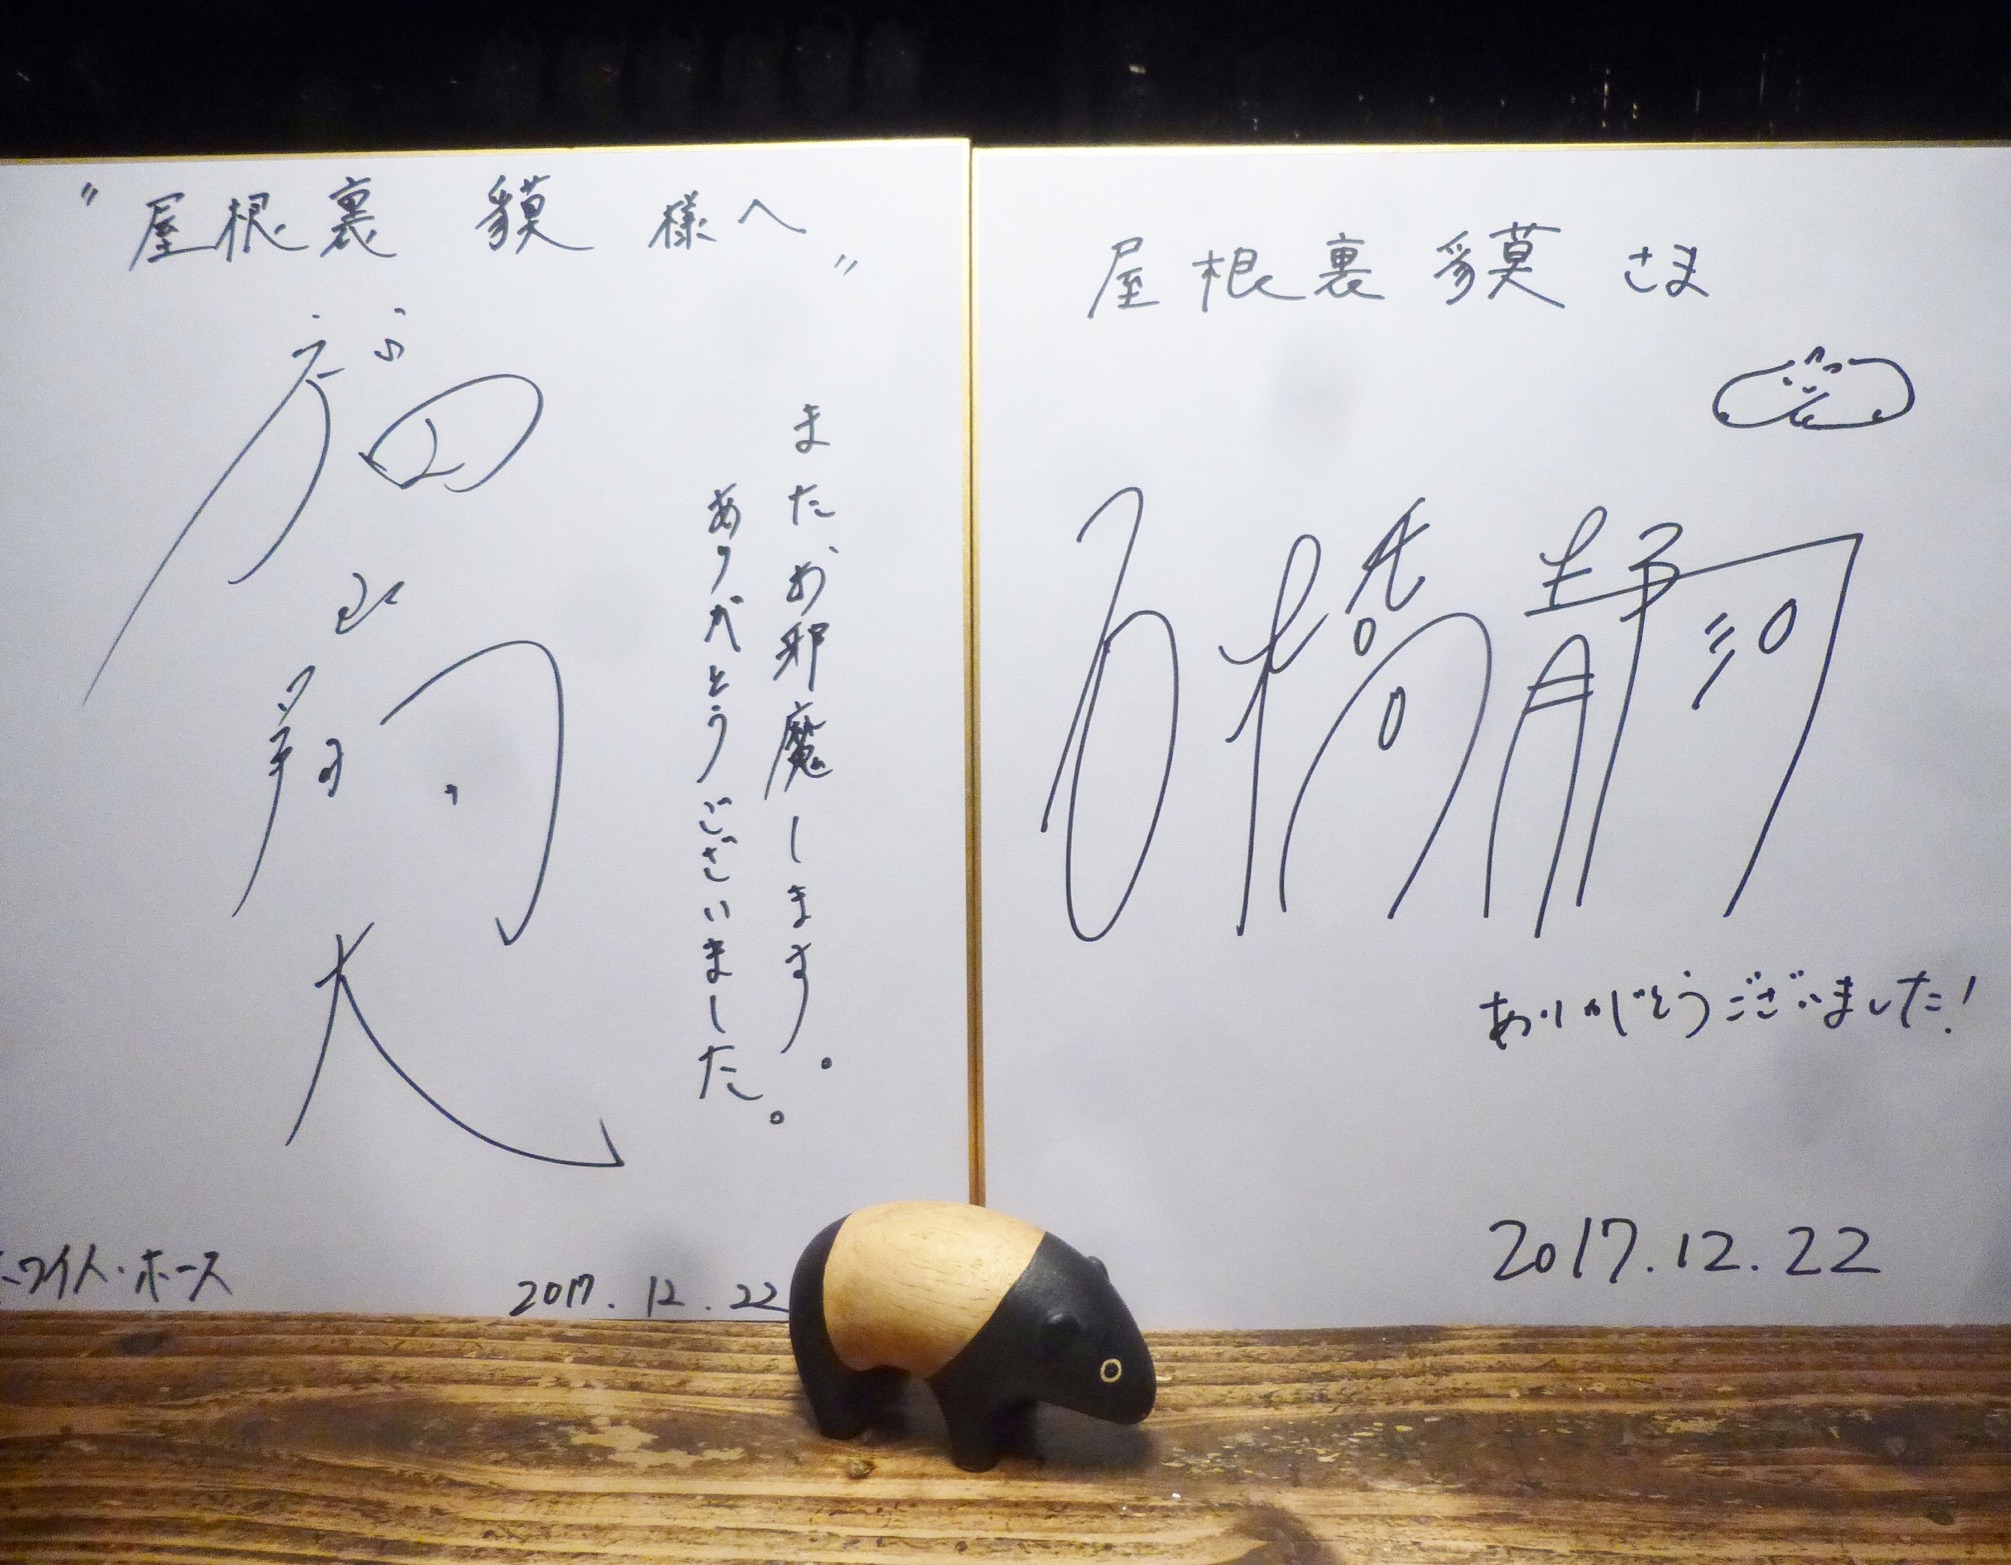 〃屋根裏 貘 様へ〃
また、お邪魔します。
ありがとうございました。
翔大
ワイト・ホース
2017.12.22
屋根裏 貘 さま
石橋静河
ありがとうございました!
2017.12.22